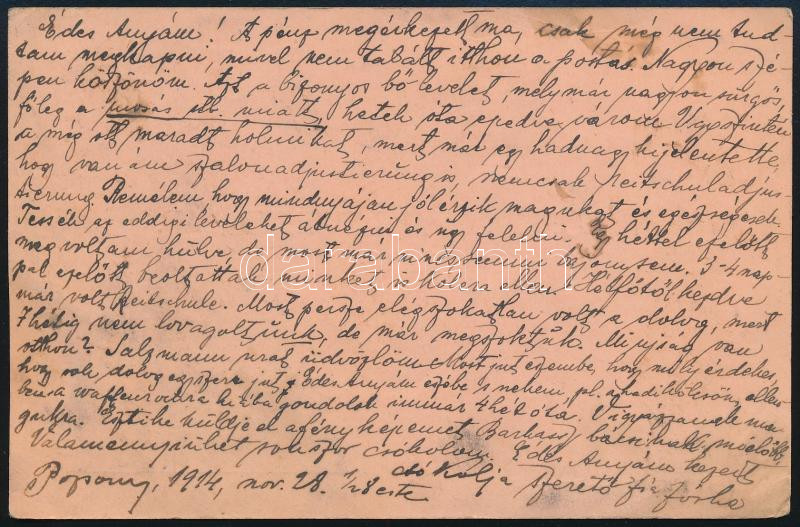 Édes Anyám! A pénz megérkezett ma, csak még nem tud-
tam megkapni, mivel nem talált itthon a postás. Nagyon szé-
pen köszönöm. Azt a bizonyos bő levelet, mely már nagyon sürgős,
főleg a mosás stb. miatt, hetek óta epedve várom. Úgyszintén
a még ott maradt holmikat, mert már egy hadnagy kijelentette,
hogy van ám szalonadjustierung is, nemcsak Reitschuladjus-
tierung. Remélem, hogy mindnyájan jól érzik magukat és egészségesek.
Tessék az eddigi leveleket átnézni és úgy felelni. Egy héttel ezelőtt
meg voltam hűlve, de most már nincs semmi bajom sem. 3-4 nap-
pal ezelőtt beoltottak minket a kolera ellen. Hétfőtől kezdve
már volt Reitschule. Most persze elég szokatlan volt a dolog, mert
7 hétig nem lovagoltunk, de már megszoktuk. Mi ujság van
otthon? Salzmann urat üdvözlöm. Most jut eszembe, hogy mily érdekes,
hogy sok dolog egyszerre jut Édes Anyám eszébe s nekem, pl.
gondolok immár 4 hét óta. Vigyázzanak ma-
gukra. Esztike küldje el a fényképemet bácsinak, mielőbb.
Valamennyiüket sokszor csókolom. Édes Anyám kezeit
csókolja szerető fia Jóska
Pozsony, 1914, nov. 28. 1/2 8 este
darabanth